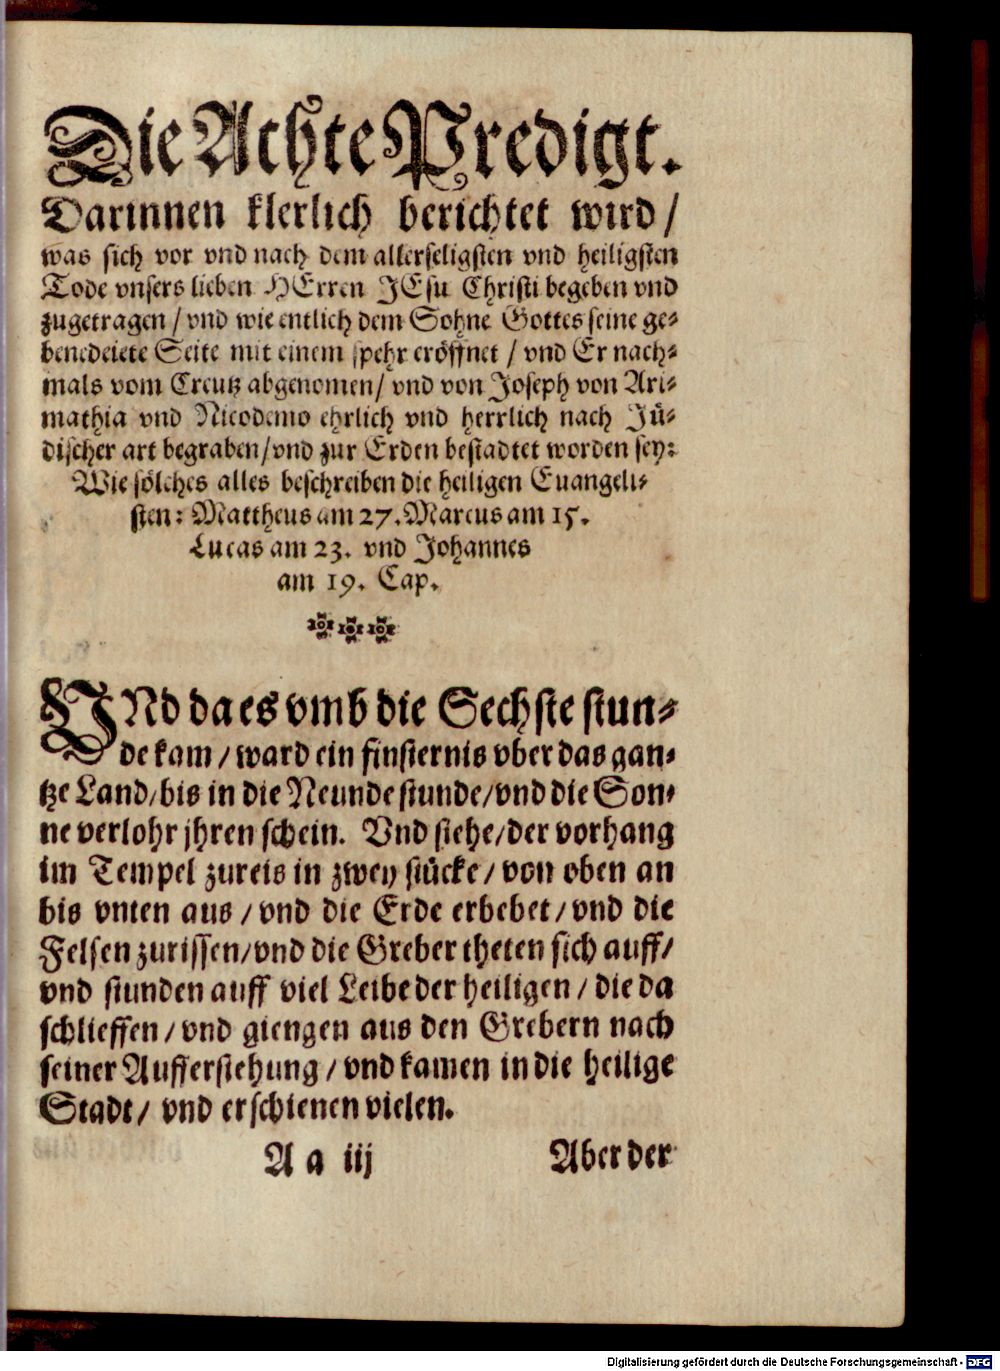 Die Achte Predigt.
Darinnen klerlich berichtet wird /
was sich vor vnd nach dem allerseligsten vnd heiligsten
Tode vnsers lieben HErren JEsu Christi begeben vnd
zugetragen / vnd wie entlich dem Sohne Gottes seine ge⸗
benedeiete Seite mit einem spehr eröffnet / vnd Er nach⸗
mals vom Creutz abgenomen / vnd von Joseph von Ari⸗
mathia vnd Nicodemo ehrlich vnd herrlich nach Jü⸗
discher art begraben / vnd zur Erden bestadtet worden sey:
Wie sölches alles beschreiben die heiligen Euangeli⸗
sten: Mattheus am 27. Marcus am 15.
Lucas am 23. vnd Johannes
am 19. Cap.
VNd da es vmb die Sechste stun⸗
de kam / ward ein finsternis vber das gan⸗
tze Land / bis in die Neunde stunde / vnd die Son⸗
ne verlohr jhren schein. Vnd siehe / der vorhang
im Tempel zureis in zwey stücke / von oben an
bis vnten aus / vnd die Erde erbebet / vnd die
Felsen zurissen / vnd die Greber theten sich auff /
vnd stunden auff viel Leibe der heiligen / die da
schlieffen / vnd giengen aus den Grebern nach
seiner Aufferstehung / vnd kamen in die heilige
Stadt / vnd erschienen vielen.
A a iij Aber der
Digitalisierung gefördert durch die Deutsche Forschungsgemeinschaft - DFG